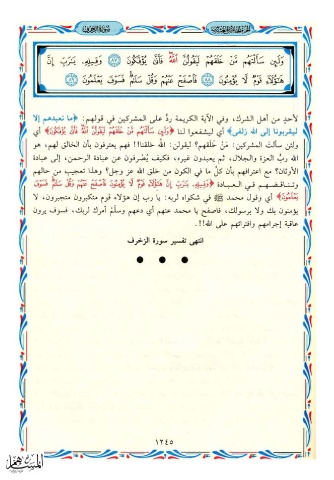 سورة الزخرف
وَلَئِن سَأَلْتَهُم مَّنْ خَلَقَهُمْ لَيَقُولُنَّ اللَّهُ فَأَنَّى يُؤْفَكُونَ ﴿٨٧﴾ وَقِيلِهِ يَا رَبِّ إِنَّ
هَؤُلَاءِ قَوْمٌ لَّا يُؤْمِنُونَ ﴿٨٨﴾ فَاصْفَحْ عَنْهُمْ وَقُلْ سَلَامٌ فَسَوْفَ يَعْلَمُونَ ﴿٨٩﴾
لأحدٍ من أهل الشرك، وفي الآية الكريمة ردٌّ على المشركين في قولهم: ﴿ما نعبدهم إلا
ليقربونا إلى الله زلفى﴾ أي ليشفعوا لنا ﴿وَلَئِن سَأَلْتَهُم مَّنْ خَلَقَهُمْ لَيَقُولُنَّ اللَّهُ فَأَنَّى يُؤْفَكُونَ﴾ أي
ولئن سألتَ المشركين: مَنْ خَلَقهم؟ ليقولن: الله خلقنا!! فهم يعترفون بأن الخالق لهم، هو
الله ربُّ العزة والجلال، ثم يعبدون غيره، فكيف يُصْرفون عن عبادة الرحمن، إلى عبادة
الأوثان؟ مع اعترافهم بأن كلَّ ما في الكون من خلق الله عز وجل؟ وهذا تعجيب من حالهم
وتناقضهم في العبادة ﴿وَقِيلِهِ يَا رَبِّ إِنَّ هَؤُلَاءِ قَوْمٌ لَّا يُؤْمِنُونَ فَاصْفَحْ عَنْهُمْ وَقُلْ سَلَامٌ فَسَوْفَ
يَعْلَمُونَ﴾ أي وقول محمد ﷺ في شكواه لربه: يا رب إن هؤلاء قوم متكبرون متجبرون، لا
يؤمنون بك ولا برسولك، فاصفح يا محمد عنهم أي دعهم وسلِّمْ أمرك لربك، فسوف يرون
عاقبة إجرامهم وافترائهم على الله!!.
انتهى تفسير سورة الزخرف
١٢٤٥